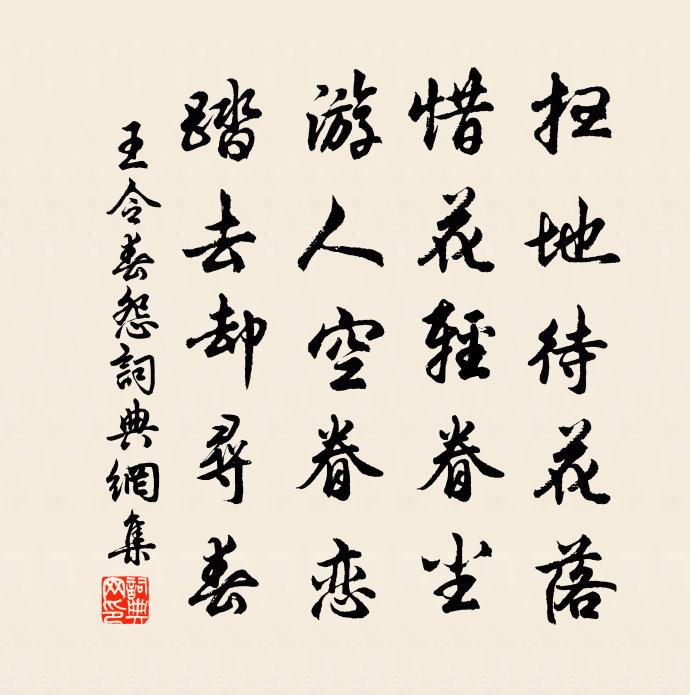 扫地待花落
惜花輕眷尘
游人空眷恋
踏去却尋春
王令春怨詞典網集
詞典
网印